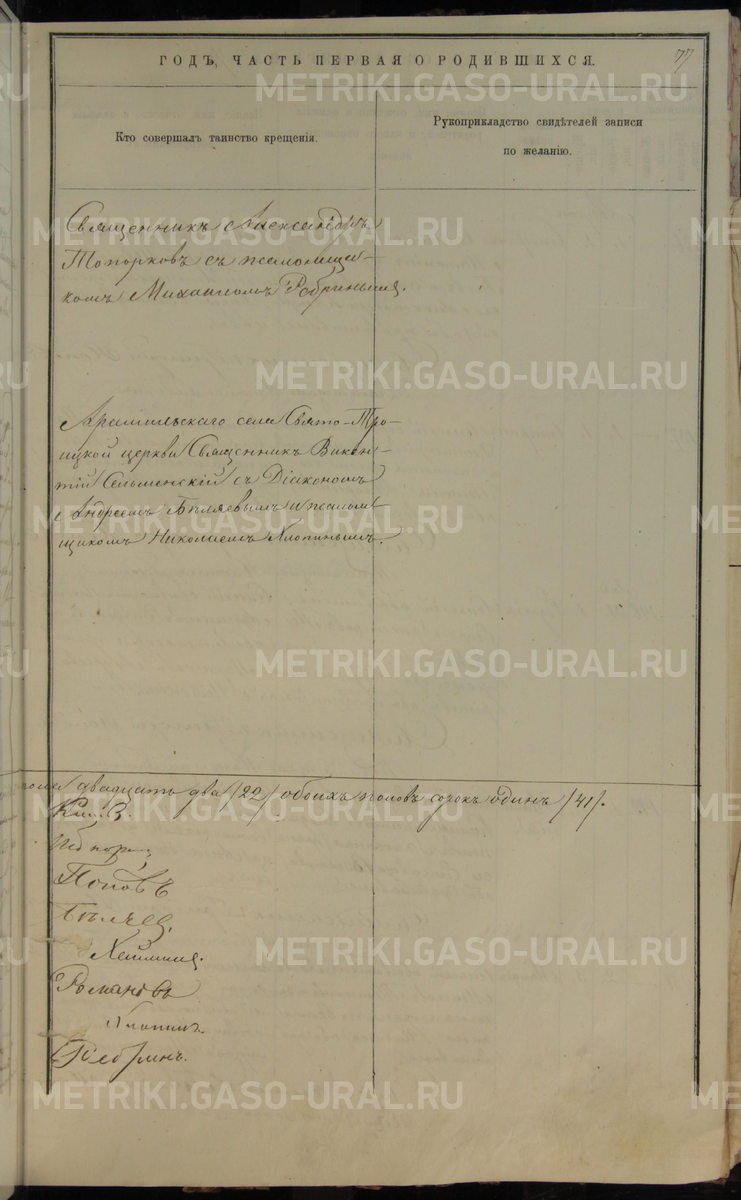 77
ГОДЪ, ЧАСТЬ ПЕРВАЯ О РОДИВШИХСЯ.
Кто совершалъ таинство крещенія.
Рукоприкладство свидѣтелей записи
по желанію.
Священникъ Александръ
Топорковъ съ псаломщи-
комъ Михаиломъ
Арамильскаго села Свято-Тро-
ицкой церкви Священникъ Викен-
тій Сельменскій съ Діакономъ
Андреемъ Бѣляевымъ и псалом-
щикомъ Николаемъ Хлопинымъ.
пола двадцать два /22/ обоихъ половъ сорокъ одинъ /41/.
Поповъ
Бѣляев
Романовъ
Хлопинъ.
METRIKI.GASO-URAL.RU